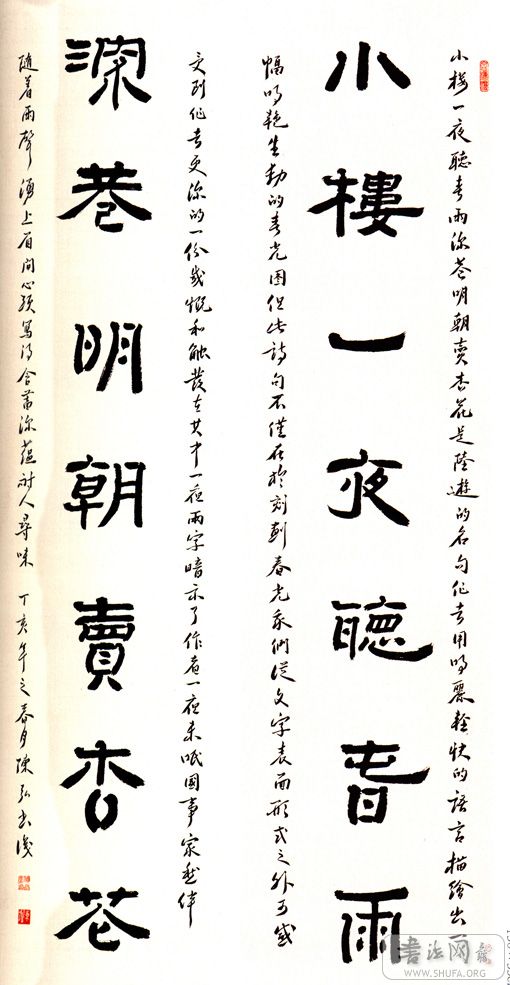 小樓一夜聽春雨
深巷明朝賣杏花
小樓一夜聽春雨深巷明朝賣杏花是陸遊的名句作者用明麗輕快的語言描繪出一
幅明艷生動的春光图但此詩句不僅在於刻劃春光我們從文字表面形式之外可感
受到作者更深的一份感慨和触發在其中一夜两字暗示了作者一夜未眠國事家愁伴
隨着雨聲湧上眉间心頭寫得含蓄深蘊耐人尋味 丁亥年之春月陳弘
書法网
WWW.SHUFA.ORG